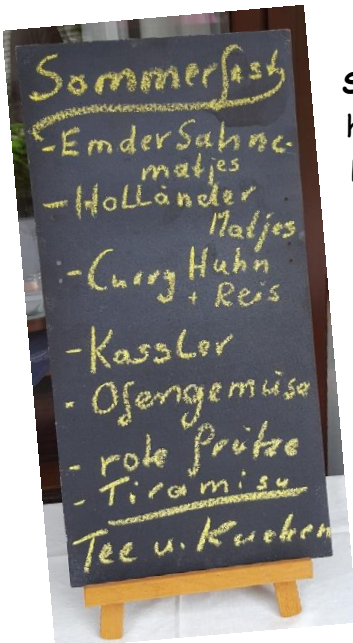 Sommerfest
- Emder Sahne-
matjes
- Holländer
Matjes
- Curry Huhn
+ Reis
- Kassler
- Ofengemüse
- rote Grütze
- Tiramisu
Tee u. Kuchen